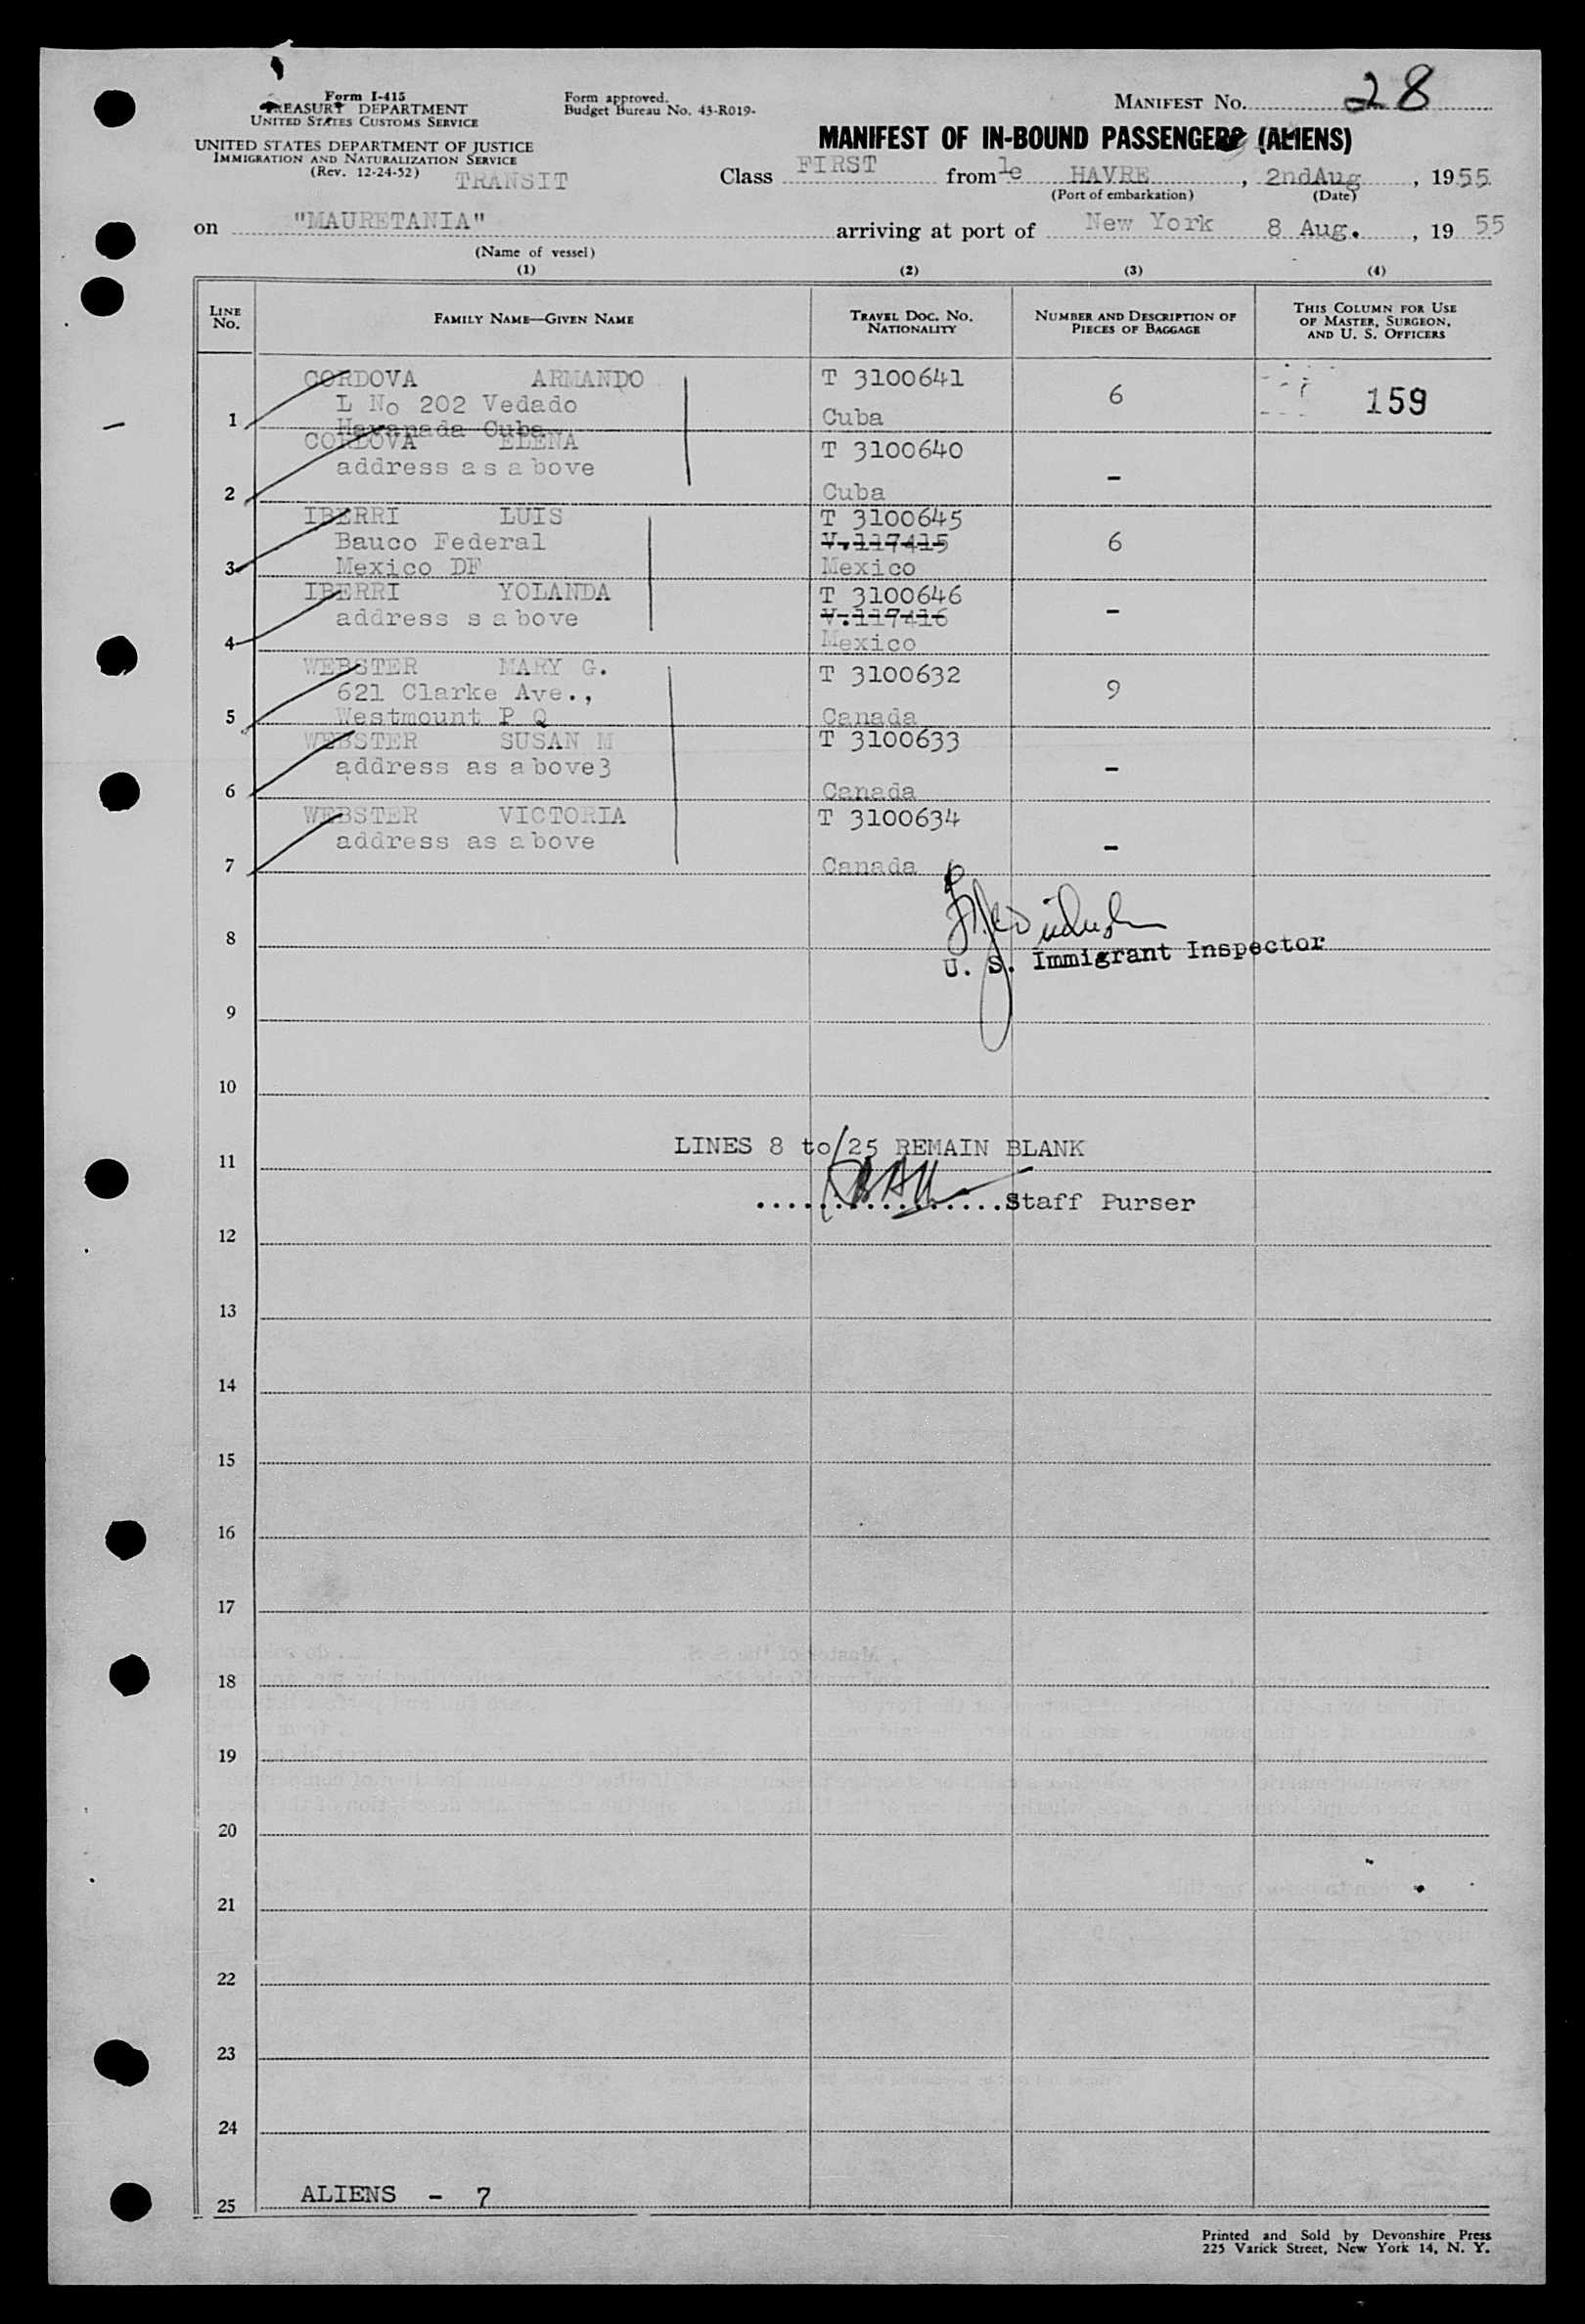 Form I-415
TREASURY DEPARTMENT
UNITED STATES CUSTOMS SERVICE
UNITED STATES DEPARTMENT OF JUSTICE
IMMIGRATION AND NATURALIZATION SERVICE
(Rev. 12-24-52) TRANSIT
Form approved.
Budget Bureau No. 43-R019-
MANIFEST No. 28
MANIFEST OF IN-BOUND PASSENGERS (ALIENS)
Class FIRST from le HAVRE, 2ndAug, 1955
(Port of embarkation) (Date)
on "MAURETANIA" arriving at port of New York 8 Aug., 19 55
(Name of vessel)
(1) (2) (3) (4)
LINE No. FAMILY NAME—GIVEN NAME TRAVEL DOC. No. NATIONALITY NUMBER AND DESCRIPTION OF PIECES OF BAGGAGE THIS COLUMN FOR USE OF MASTER, SURGEON, AND U. S. OFFICERS
CORDOVA ARMANDO T 3100641 6 159
L No 202 Vedado
1 Havanada Cuba Cuba
CORDOVA ELENA T 3100640
address as above -
2 Cuba
IBERRI LUIS T 3100645
Bauco Federal V.117415 6
3 Mexico DF Mexico
IBERRI YOLANDA T 3100646
address s above V.117416 -
4 Mexico
WEBSTER MARY G. T 3100632
621 Clarke Ave., 9
5 Westmount P Q Canada
WEBSTER SUSAN M T 3100633
address as above3 -
6 Canada
WEBSTER VICTORIA T 3100634
address as above -
7 Canada
8
U. S. Immigrant Inspector
9
10
LINES 8 to/25 REMAIN BLANK
11
................Staff Purser
12
13
14
15
16
17
18
19
20
21
22
23
24
25 ALIENS - 7
Printed and Sold by Devonshire Press
225 Varick Street, New York 14, N. Y.